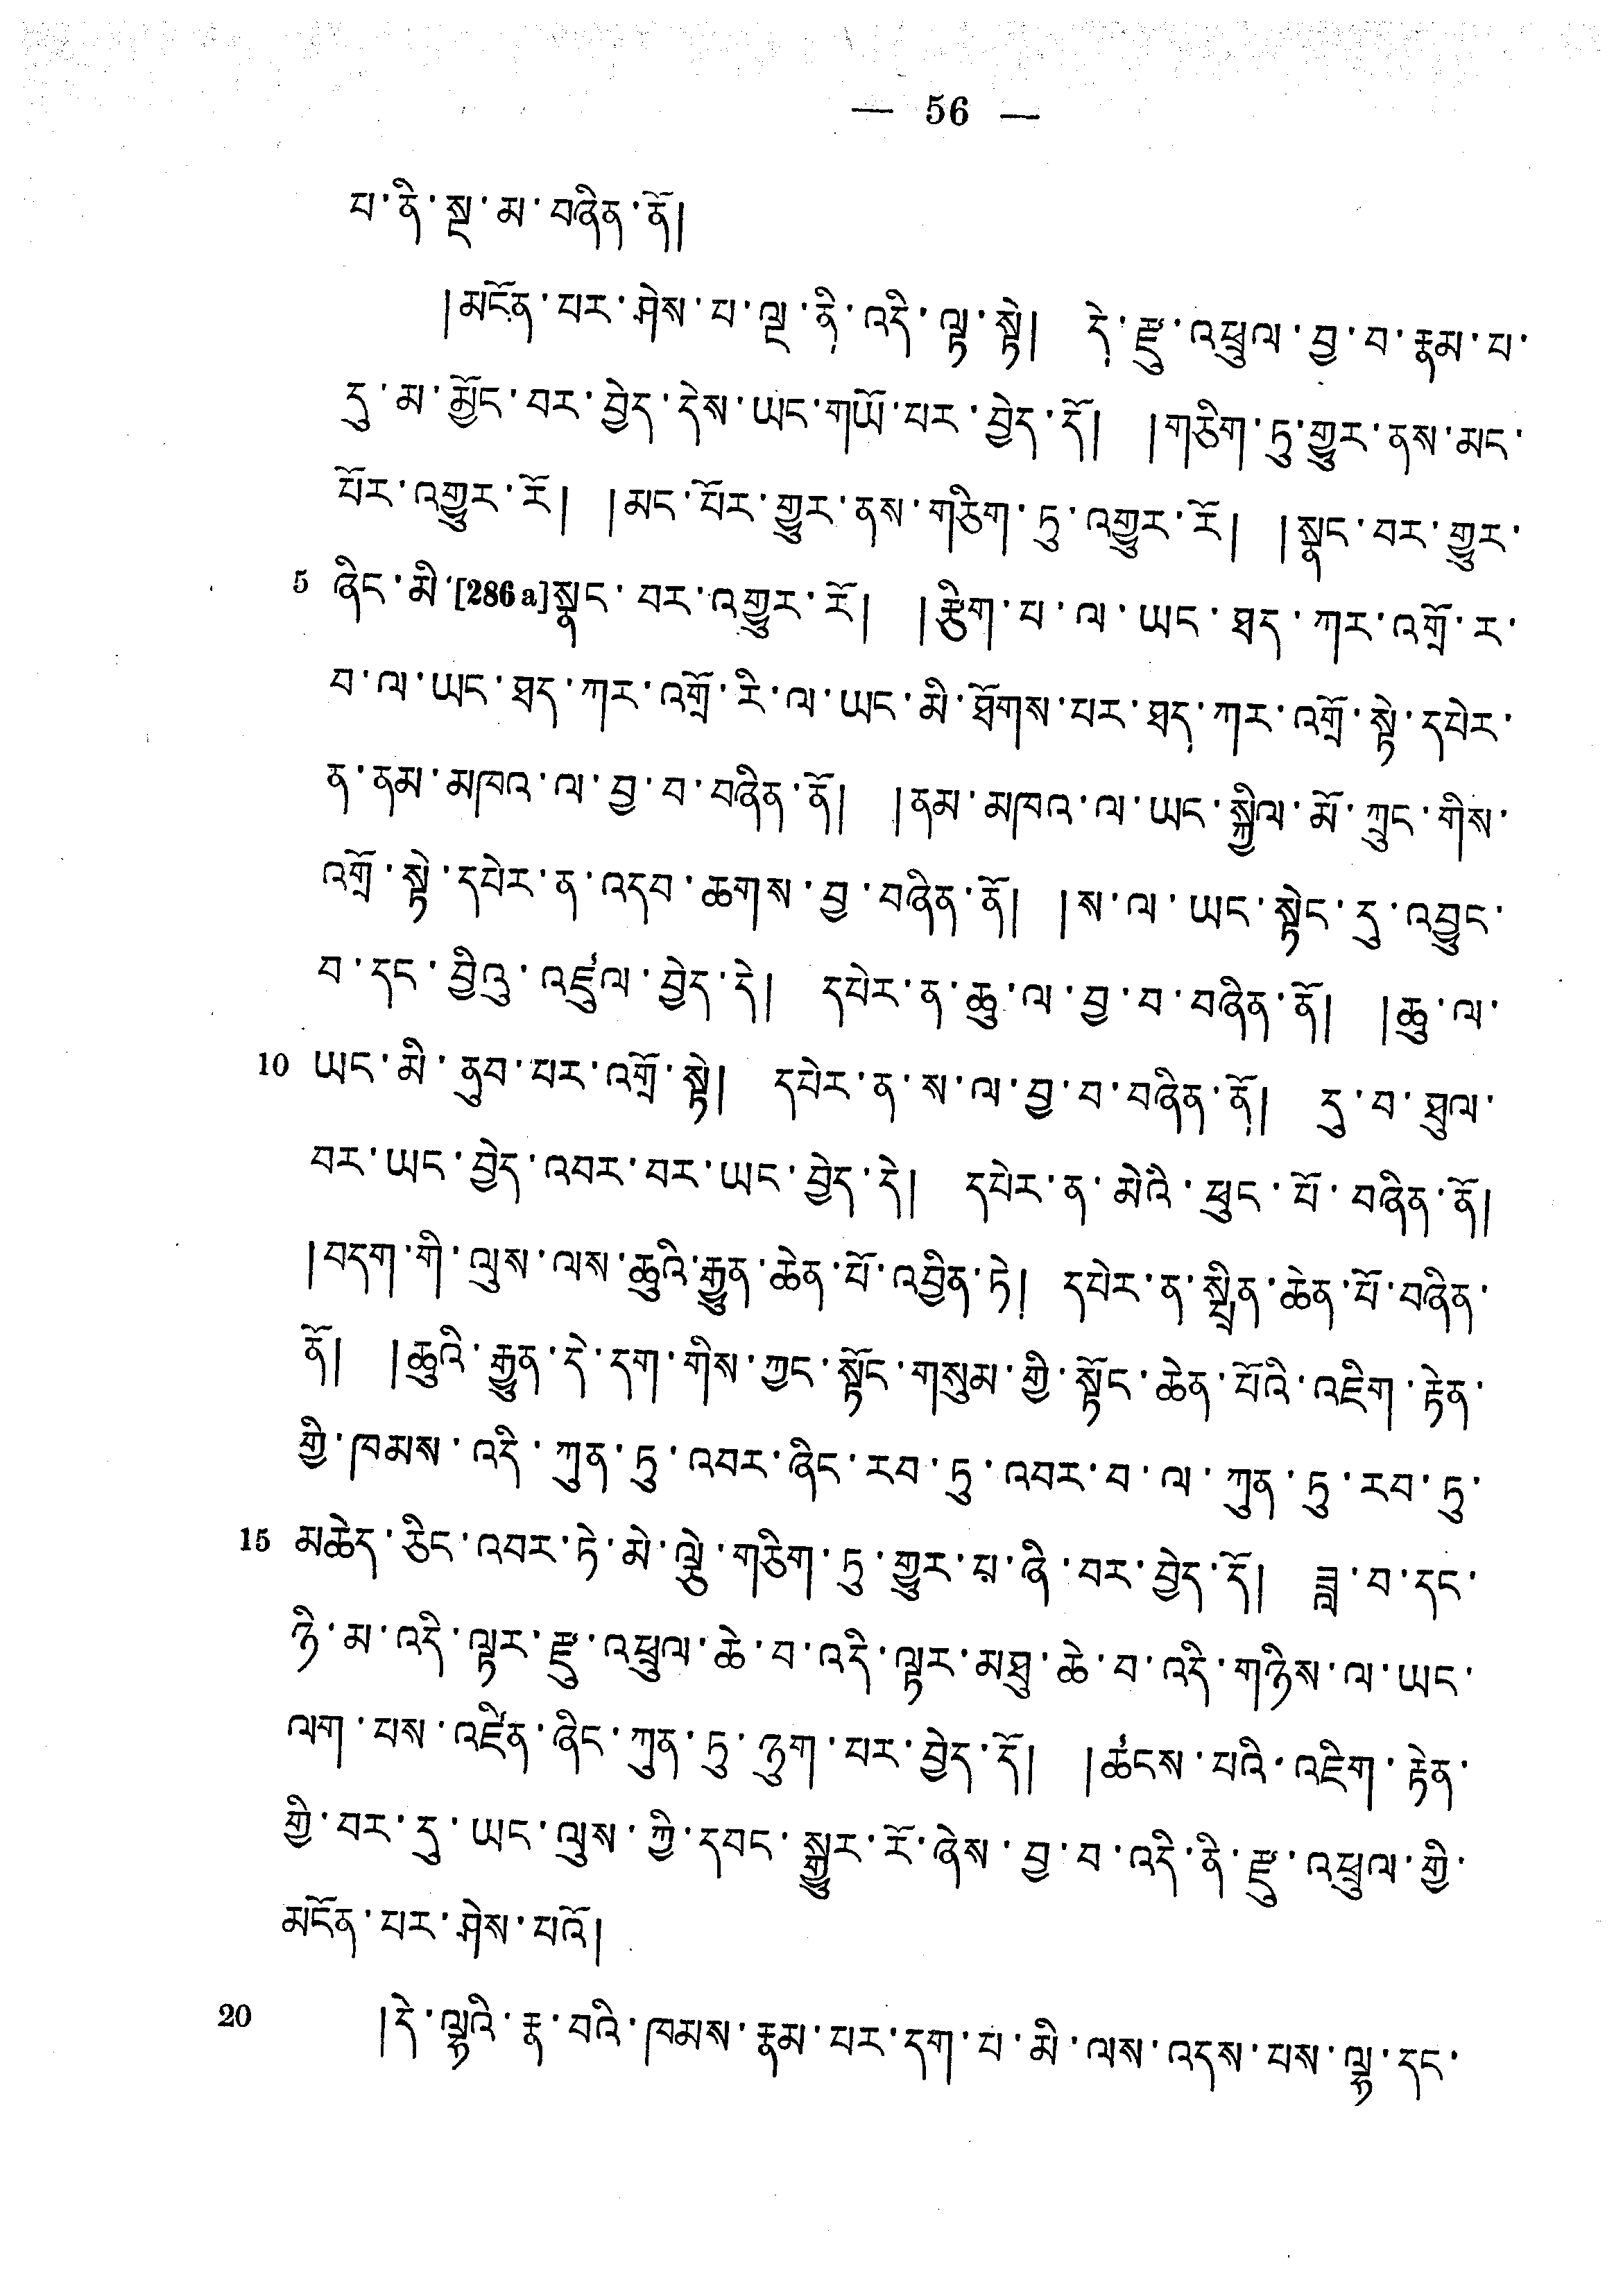 — 56 —
པ་ནི་སྔ་མ་བཞིན་ནོ།
།མངོན་པར་ཤེས་པ་ལྔ་ནི་འདི་ལྟ་སྟེ། དེ་རྫུ་འཕྲུལ་བྱ་བ་རྣམ་པ་
དུ་མ་མྱོང་བར་བྱེད་དེས་ཡང་གཡོ་བར་བྱེད་དོ། །གཅིག་ཏུ་གྱུར་ནས་མང་
པོར་འགྱུར་རོ། །མང་པོར་གྱུར་ནས་གཅིག་ཏུ་འགྱུར་རོ། །སྣང་བར་གྱུར་
5 ཞིང་མི་[286a]སྣང་བར་འགྱུར་རོ། །རྩིག་པ་ལ་ཡང་ཐད་ཀར་འགྲོ་ར་
བ་ལ་ཡང་ཐད་ཀར་འགྲོ་རི་ལ་ཡང་མི་ཐོགས་པར་ཐད་ཀར་འགྲོ་སྟེ་དཔེར་
ན་ནམ་མཁའ་ལ་བྱ་བ་བཞིན་ནོ། །ནམ་མཁའ་ལ་ཡང་སྐྱིལ་མོ་ཀྲུང་གིས་
འགྲོ་སྟེ་དཔེར་ན་འདབ་ཆགས་བྱ་བཞིན་ནོ། །ས་ལ་ཡང་སྟེང་དུ་འབྱུང་
བ་དང་བྱིའུ་འཛུལ་བྱེད་དེ། དཔེར་ན་ཆུ་ལ་བྱ་བ་བཞིན་ནོ། །ཆུ་ལ་
10 ཡང་མི་ནུབ་པར་འགྲོ་སྟེ། དཔེར་ན་ས་ལ་བྱ་བ་བཞིན་ནོ། དུ་བ་ཐུལ་
བར་ཡང་བྱེད་འབར་བར་ཡང་བྱེད་དེ། དཔེར་ན་མེའི་ཕུང་པོ་བཞིན་ནོ།
།བདག་གི་ལུས་ལས་ཆུའི་རྒྱུན་ཆེན་པོ་འབྱིན་ཏེ། དཔེར་ན་སྤྲིན་ཆེན་པོ་བཞིན་
ནོ། །ཆུའི་རྒྱུན་དེ་དག་གིས་ཀྱང་སྟོང་གསུམ་གྱི་སྟོང་ཆེན་པོའི་འཇིག་རྟེན་
གྱི་ཁམས་འདི་ཀུན་ཏུ་འབར་ཞིང་རབ་ཏུ་འབར་བ་ལ་ཀུན་ཏུ་རབ་ཏུ་
15 མཆེད་ཅིང་འབར་ཏེ་མེ་ལྕེ་གཅིག་ཏུ་གྱུར་པ་ཞི་བར་བྱེད་དོ། ཟླ་བ་དང་
ཉི་མ་འདི་ལྟར་རྫུ་འཕྲུལ་ཆེ་བ་འདི་ལྟར་མཐུ་ཆེ་བ་འདི་གཉིས་ལ་ཡང་
ལག་པས་འཛིན་ཞིང་ཀུན་ཏུ་ཉུག་པར་བྱེད་དོ། །ཚངས་པའི་འཇིག་རྟེན་
གྱི་བར་དུ་ཡང་ལུས་ཀྱི་དབང་སྒྱུར་རོ་ཞེས་བྱ་བ་འདི་ནི་རྫུ་འཕྲུལ་གྱི་
མངོན་པར་ཤེས་པའོ།
20 །དེ་ལྷའི་རྣ་བའི་ཁམས་རྣམ་པར་དག་པ་མི་ལས་འདས་པས་ལྷ་དང་